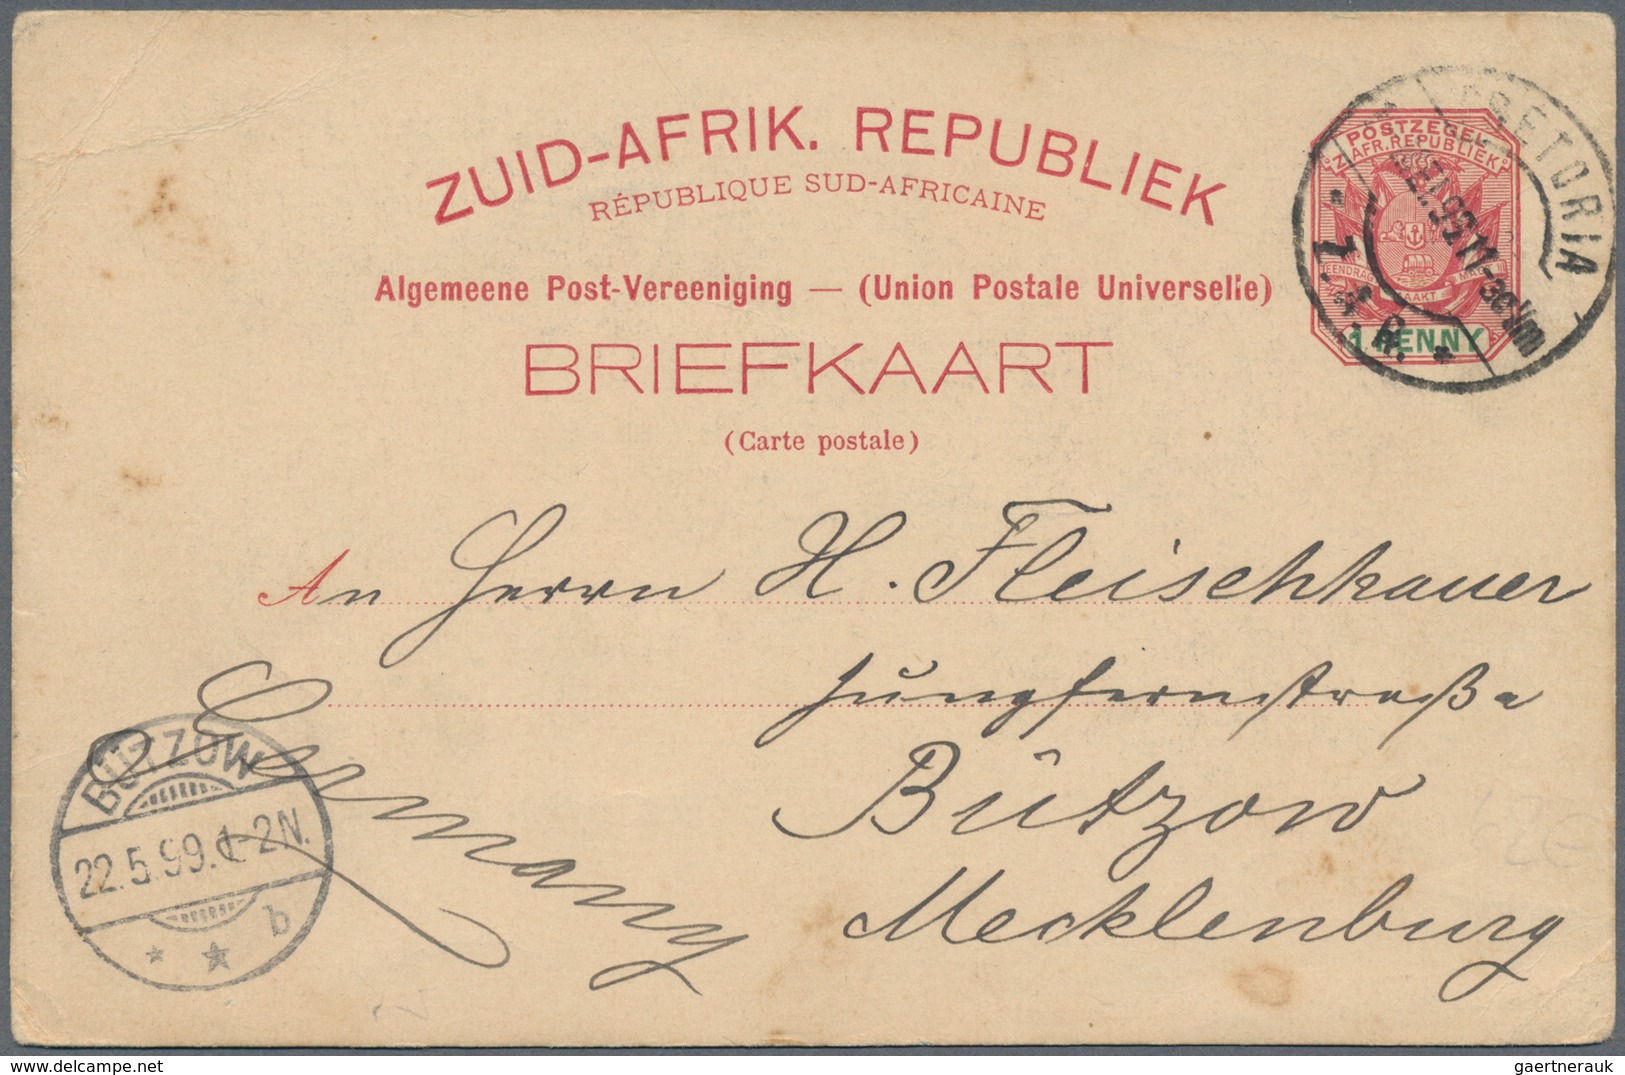 ZUID-AFRIK. REPUBLIEK
RÉPUBLIQUE SUD-AFRICAINE
Algemeene Post-Vereeniging — (Union Postale Universelle)
BRIEFKAART
(Carte postale)
POSTZEGEL
Z. AFR. REPUBLIEK
EENDRAGT MAAKT MAGT
1 PENNY
PRETORIA
Z.A.R.
An Herrn H. Fleischhauer
Jungfernstraße
Bützow
Mecklenburg
Germany
BÜTZOW
22.5.99.1-2N.
b
gaertnerauk
delcampe.net